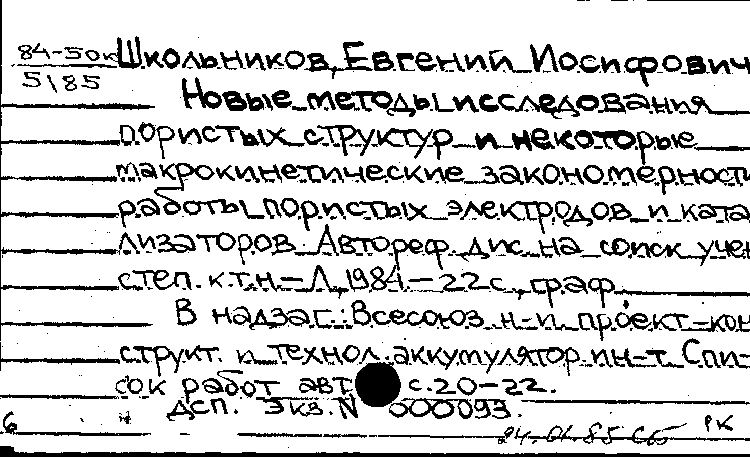 84-5ок Школьников, Евгений Иосифович
5185
Новые методы исследования
пористых структур и некоторые
макрокинетические закономерности
работы пористых электродов и ката
лизаторов. Автореф. дис. на соиск учен
степ. к.т.н. - Л., 1984. - 22 с., граф.
В надзаг.: Всесоюз. н-и. проект.-кон
структ. и технол. аккумулятор. ин-т. Спи-
сок работ авт. с. 20-22.
ДСП. Экз. N 000093.
6
24.01.85 СБ РК